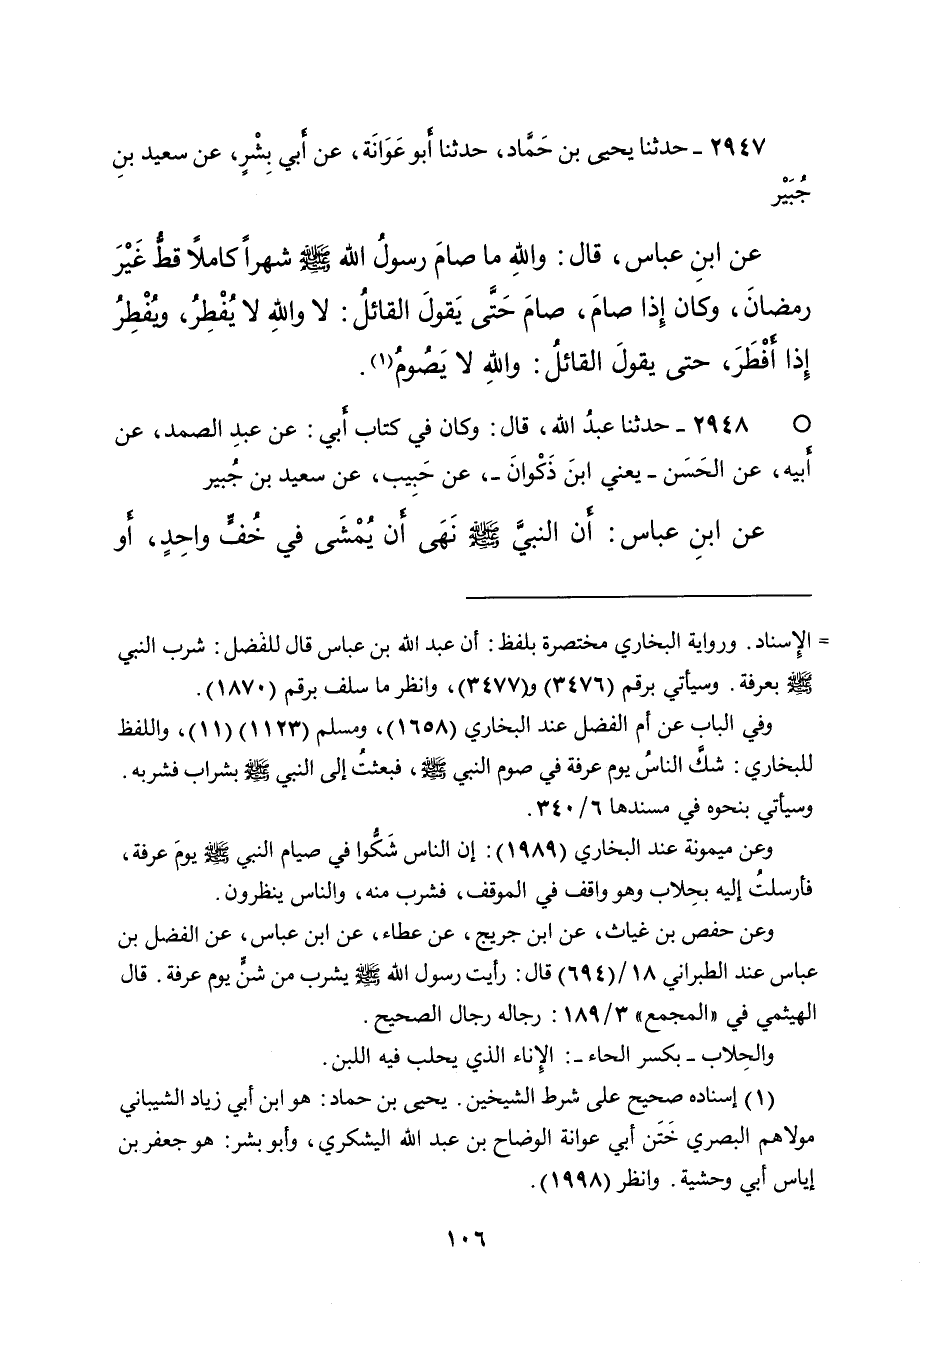 ٢٩٤٧ ـ حدثنا يحيى بن حَمَّاد، حدثنا أَبو عَوَانَة، عن أَبي بِشْرٍ، عن سعيد بنِ
جُبَيْر
عن ابنِ عباس، قال: واللهِ ما صامَ رسولُ الله ﷺ شهراً كاملاً قطُّ غَيْرَ
رمضانَ، وكان إِذا صامَ، صامَ حَتَّى يَقولَ القائلُ: لا واللهِ لا يُفْطِرُ، ويُفْطِرُ
إِذا أَفْطَرَ، حتى يقولَ القائلُ: واللهِ لا يَصُومُ(١).
○ ٢٩٤٨ ـ حدثنا عبدُ الله، قال: وكان في كتاب أَبي: عن عبدِ الصمد، عن
أَبيه، عن الحَسَن ـ يعني ابنَ ذَكْوانَ ـ، عن حَبِيب، عن سعيد بن جُبير
عن ابنِ عباس: أَن النبيَّ ﷺ نَهَى أَن يُمْشَى في خُفٍّ واحِدٍ، أَو
= الإِسناد. ورواية البخاري مختصرة بلفظ: أن عبد الله بن عباس قال للفَضل: شرب النبي
ﷺ بعرفة. وسيأتي برقم (٣٤٧٦) و(٣٤٧٧)، وانظر ما سلف برقم (١٨٧٠).
وفي الباب عن أم الفضل عند البخاري (١٦٥٨)، ومسلم (١١٢٣) (١١)، واللفظ
للبخاري: شكَّ الناسُ يوم عرفة في صوم النبي ﷺ، فبعثتُ إلى النبي ﷺ بشراب فشربه.
وسيأتي بنحوه في مسندها ٣٤٠/٦.
وعن ميمونة عند البخاري (١٩٨٩): إن الناس شَكُّوا في صيام النبي ﷺ يومَ عرفة،
فأرسلتُ إليه بحِلاب وهو واقف في الموقف، فشرب منه، والناس ينظرون.
وعن حفص بن غياث، عن ابن جريج، عن عطاء، عن ابن عباس، عن الفضل بن
عباس عند الطبراني ١٨/(٦٩٤) قال: رأيت رسول الله ﷺ يشرب من شنٍّ يوم عرفة. قال
الهيثمي في «المجمع» ١٨٩/٣: رجاله رجال الصحيح.
والحِلاب ـ بكسر الحاء ـ: الإناء الذي يحلب فيه اللبن.
(١) إسناده صحيح على شرط الشيخين. يحيى بن حماد: هو ابن أبي زياد الشيباني
مولاهم البصري خَتَن أبي عوانة الوضاح بن عبد الله اليشكري، وأبو بشر: هو جعفر بن
إياس أبي وحشية. وانظر (١٩٩٨).
١٠٦